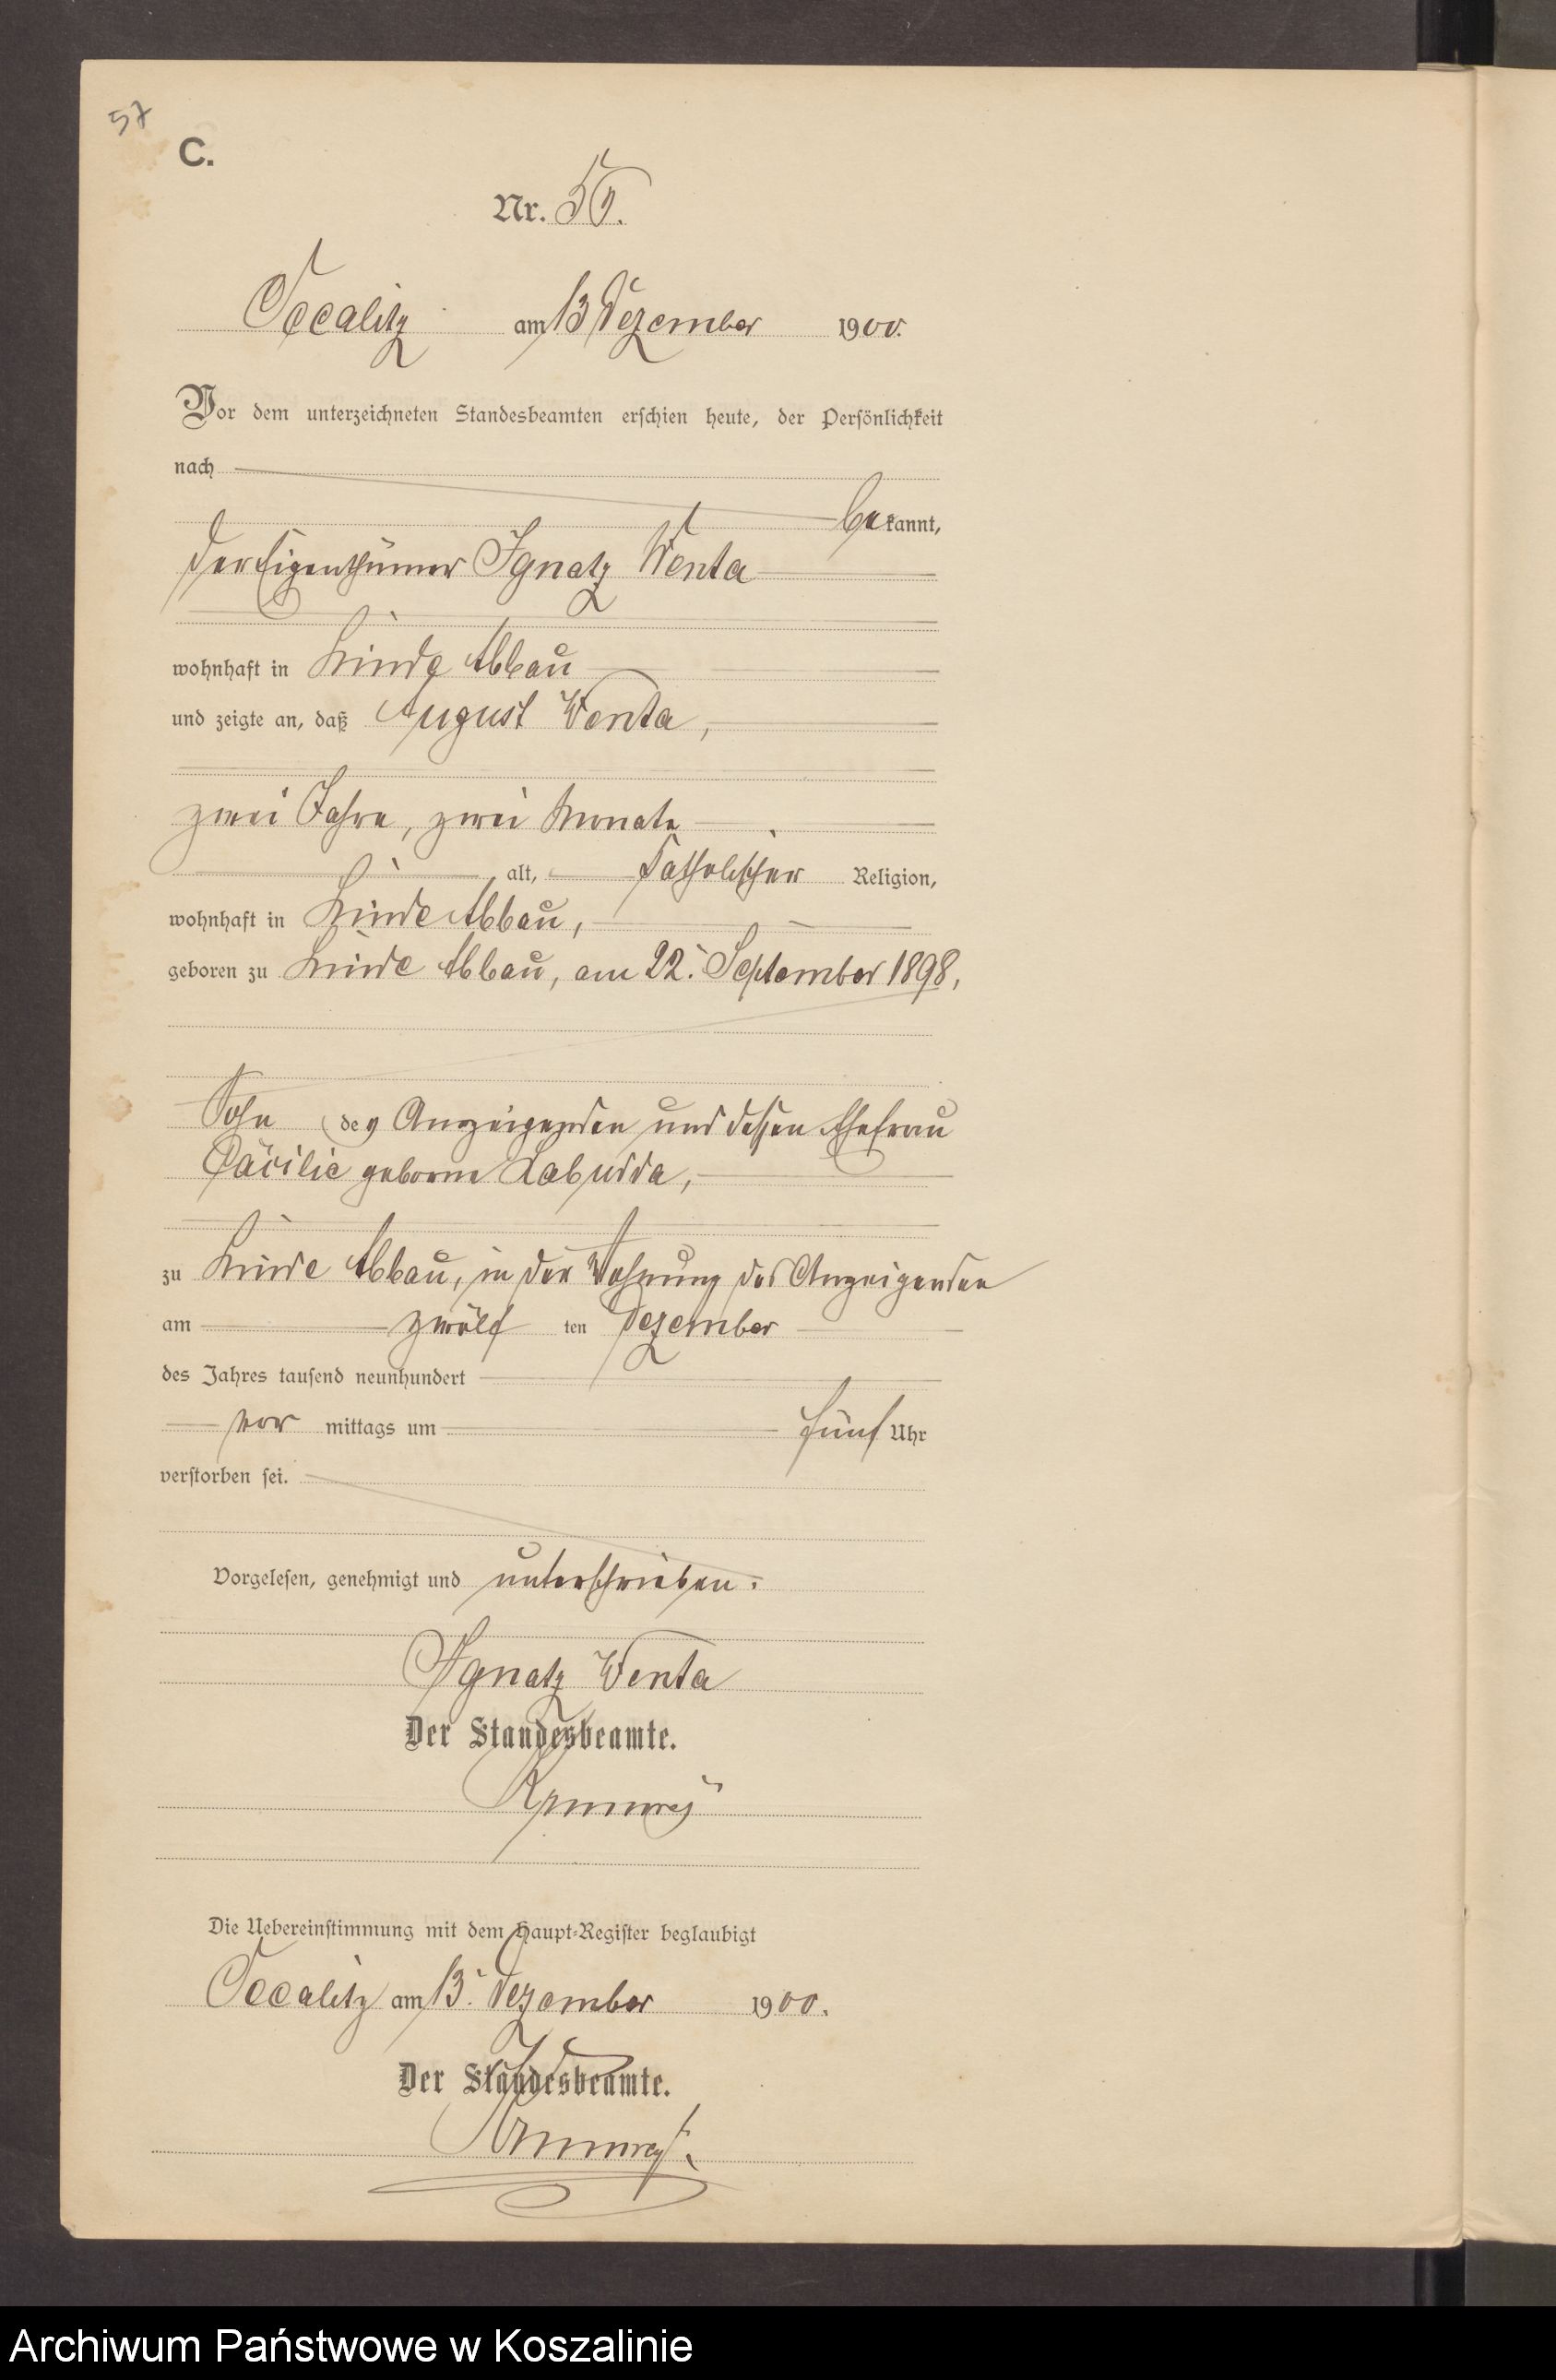 57
C.
Nr. 50.
am 13 Dezember 1900.
Vor dem unterzeichneten Standesbeamten erschien heute, der Persönlichkeit
nach
bekannt,
der Eigenthümer Ignatz Wenta
wohnhaft in Linde Abbau
und zeigte an, daß August Wenta,
zwei Jahre, zwei Monate
alt, katholischer Religion,
wohnhaft in Linde Abbau,
geboren zu Linde Abbau, am 22. September 1898,
Sohn des Anzeigenden und dessen Ehefrau
Cäcilie geborne Labudda,
zu Linde Abbau, in der Wohnung des Anzeigenden
am zwölf ten Dezember
des Jahres tausend neunhundert
vor mittags um fünf Uhr
verstorben sei.
Vorgelesen, genehmigt und unterschrieben.
Ignatz Wenta
Der Standesbeamte.
Die Uebereinstimmung mit dem Haupt-Register beglaubigt
am 13. Dezember 1900.
Der Standesbeamte.
Archiwum Państwowe w Koszalinie